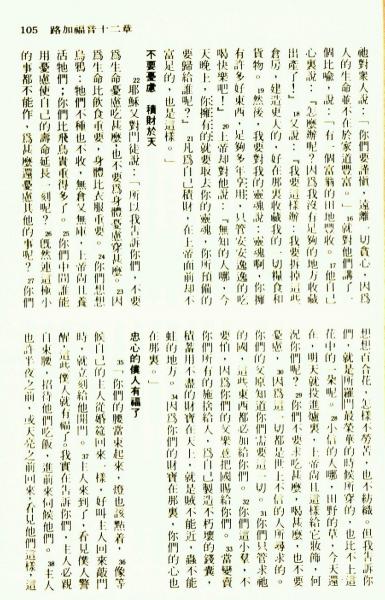 105 路加福音十二章
祂對衆人說：「你們要謹慎，遠離一切貪心，因爲
人的生命並不在於家道豐富。」16 就對他們講了一
個比喻，說：「有一個富翁的田地豐收。17 他自己
心裏說：『怎麼辦呢？因爲我沒有足夠的地方收藏
出產了！』18 又說：『我要這樣辦：我要拆掉這些
倉房，建造更大的，好在那裏收藏我的一切糧食和
貨物。19 然後，我要對我的靈魂說：靈魂啊，你擁
有許多好東西，足夠多年享用，只管安安逸逸的吃
喝快樂吧！』20 上帝却對他說：『無知的人哪，今
天晚上，你擁有的就要取去你的靈魂，你所預備的
要歸給誰呢？』21 凡爲自己積財，在上帝面前却不
富足的，也是這樣。」
不要憂慮 積財於天
22 耶穌又對門徒說：「所以我告訴你們，不要
爲生命憂慮吃甚麼，也不要爲身體憂慮穿甚麼。23 因
爲生命比飲食重要，身體比衣服重要。24 你們想想
烏鴉：牠們不種也不收，無倉又無庫，上帝尚且養
活牠們；你們比飛鳥貴重得多了。25 你們中間誰能
用憂慮使自己的壽命延長一刻呢？26 旣然連這極小
的事都不能作，爲甚麼還憂慮其他的事呢？27 你們
想想百合花，怎樣不勞苦，也不紡織。但我告訴你
們，就是所羅門最榮華的時候所穿的，也比不上這
花中的一朵呢。28 小信的人哪，田野的草，今天還
在，明天就投進爐裏，上帝尚且這樣給它妝飾，何
況你們呢？29 你們不要求吃甚麼，喝甚麼，也不要
憂慮，30 因爲這一切都是世上不信的人所尋求的。
你們的父原知道你們需要這一切。31 你們只管求祂
的國，這些東西都必加給你們。32 你們這小羣，不
要怕，因爲你們的父樂意把國賜給你們。33 當變賣
你們所有的施捨給人，爲自己製造不朽壞的錢囊，
積蓄用不盡的財寶在天上，就是賊不能近，蟲不能
蛀的地方。34 因爲你們的財寶在那裏，你們的心也
在那裏。」
忠心的僕人有福了
35 「你們的腰當束起來，燈也該點着，36 像等
候自己的主人從婚筵回來一樣，好叫主人回來敲門
時，就立刻給他開門。37 主人來到了，看見僕人警
醒，這些僕人就有福了。我實在告訴你們，主人必親
自束腰，招待他們吃飯，進前來伺候他們。38 主人
也許半夜之前，或天亮之前回來，看見他們這樣，這